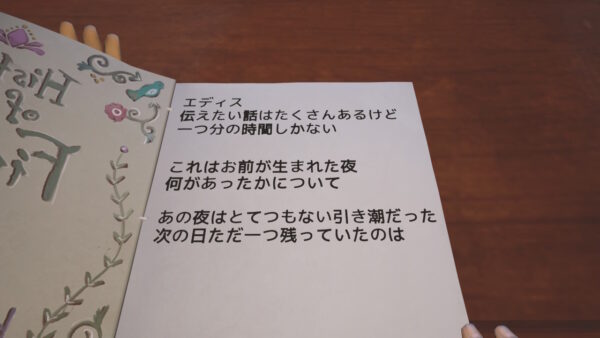 エディス
伝えたい話はたくさんあるけど
一つ分の時間しかない
これはお前が生まれた夜
何があったかについて
あの夜はとてつもない引き潮だった
次の日ただ一つ残っていたのは